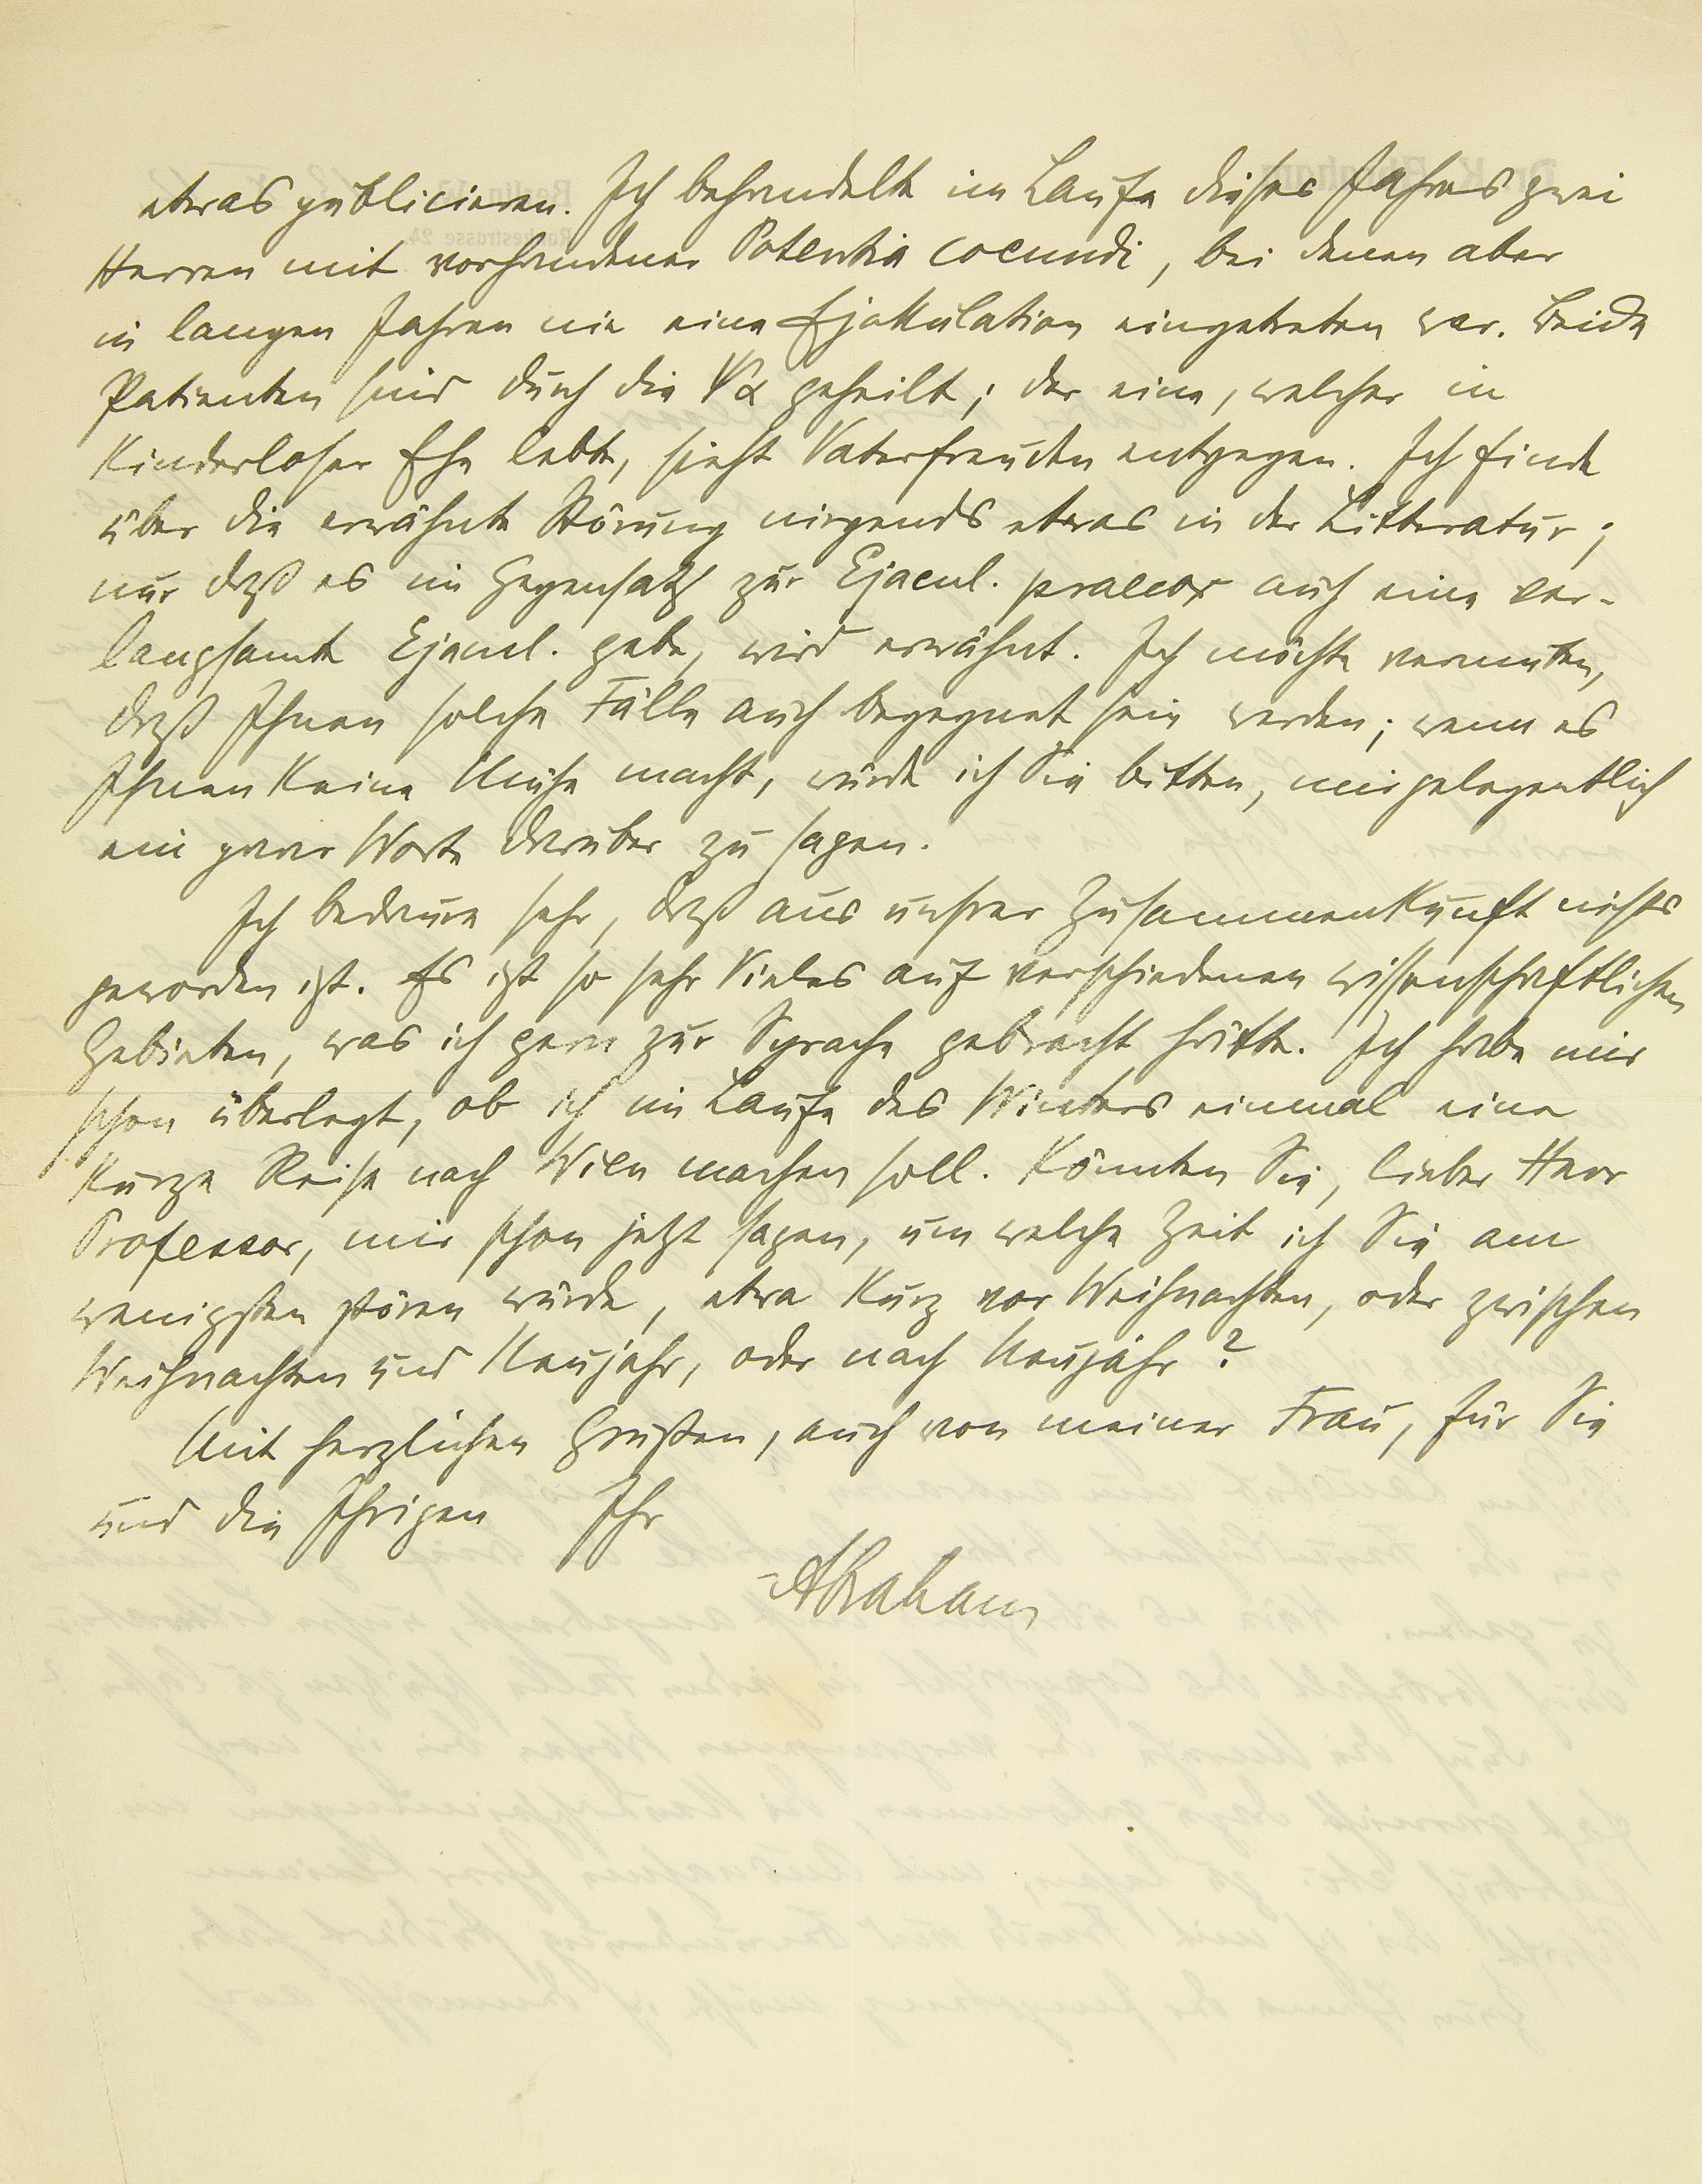 etwas publicieren. Ich behandelte im Laufe dieses Jahres zwei
Herren mit vorhandener Potentia coeundi, bei denen aber
in langen Jahren nie eine Ejakulation eingetreten war. Beide
Patienten sind durch die ΨΑ geheilt; der eine, welcher in
kinderloser Ehe lebte, sieht Vaterfreuden entgegen. Ich finde
über die erwähnte Störung nirgends etwas in der Litteratur;
nur daß es im Gegensatz zur Ejacul. praecox auch eine ver-
langsamte Ejacul. gebe, wird erwähnt. Ich möchte vermuten,
daß Ihnen solche Fälle auch begegnet sein werden; wenn es
Ihnen keine Mühe macht, würde ich Sie bitten, mir gelegentlich
ein paar Worte darüber zu sagen.
Ich bedaure sehr, daß aus unsrer Zusammenkunft nichts
geworden ist. Es ist so sehr Vieles auf verschiedenen wissenschaftlichen
Gebieten, was ich gern zur Sprache gebracht hätte. Ich habe mir
schon überlegt, ob ich im Laufe des Winters einmal eine
kurze Reise nach Wien machen soll. Könnten Sie, lieber Herr
Professor, mir schon jetzt sagen, um welche Zeit ich Sie am
wenigsten stören würde, etwa kurz vor Weihnachten, oder zwischen
Weihnachten und Neujahr, oder nach Neujahr?
Mit herzlichen Grüßen, auch von meiner Frau, für Sie
und die Ihrigen Ihr
Abraham